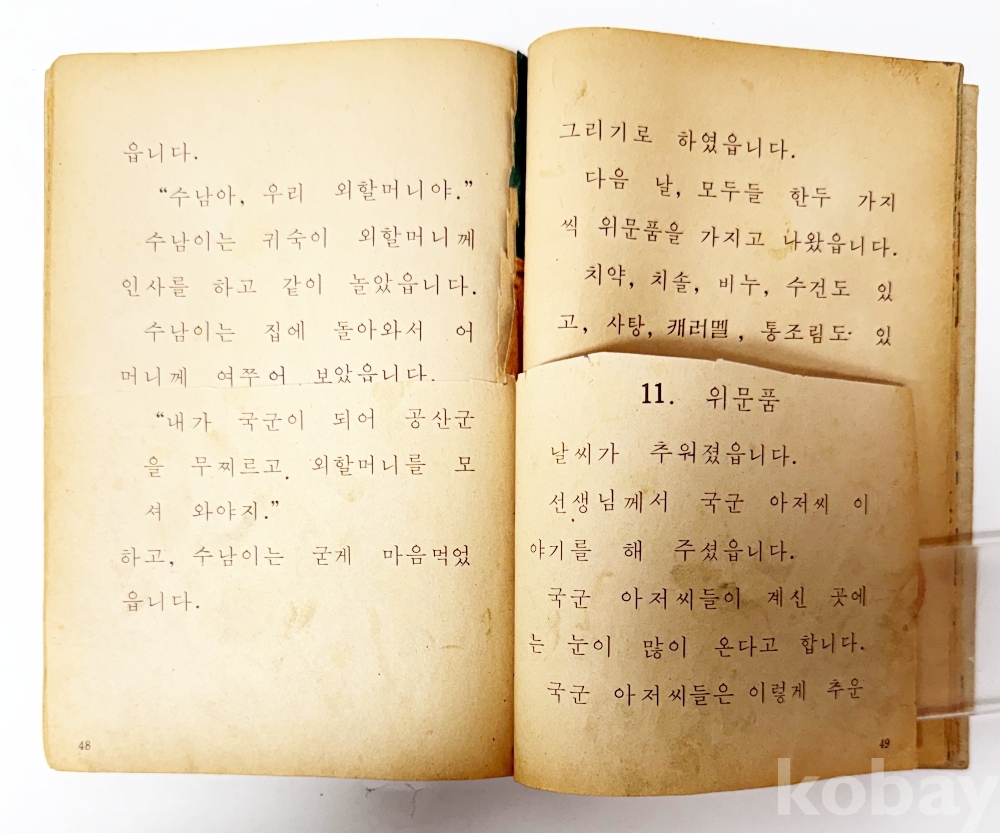 읍니다.
“수남아, 우리 외할머니야.”
수남이는 귀숙이 외할머니께
인사를 하고 같이 놀았읍니다.
수남이는 집에 돌아와서 어
머니께 여쭈어 보았읍니다.
“내가 국군이 되어 공산군
을 무찌르고, 외할머니를 모
셔 와야지.”
하고, 수남이는 굳게 마음먹었
읍니다.
48
그리기로 하였읍니다.
다음 날, 모두들 한두 가지
씩 위문품을 가지고 나왔읍니다.
치약, 치솔, 비누, 수건도 있
고, 사탕, 캐러멜, 통조림도 있
11. 위문품
날씨가 추워졌읍니다.
선생님께서 국군 아저씨 이
야기를 해 주셨읍니다.
국군 아저씨들이 계신 곳에
는 눈이 많이 온다고 합니다.
국군 아저씨들은 이렇게 추운
49
kobay